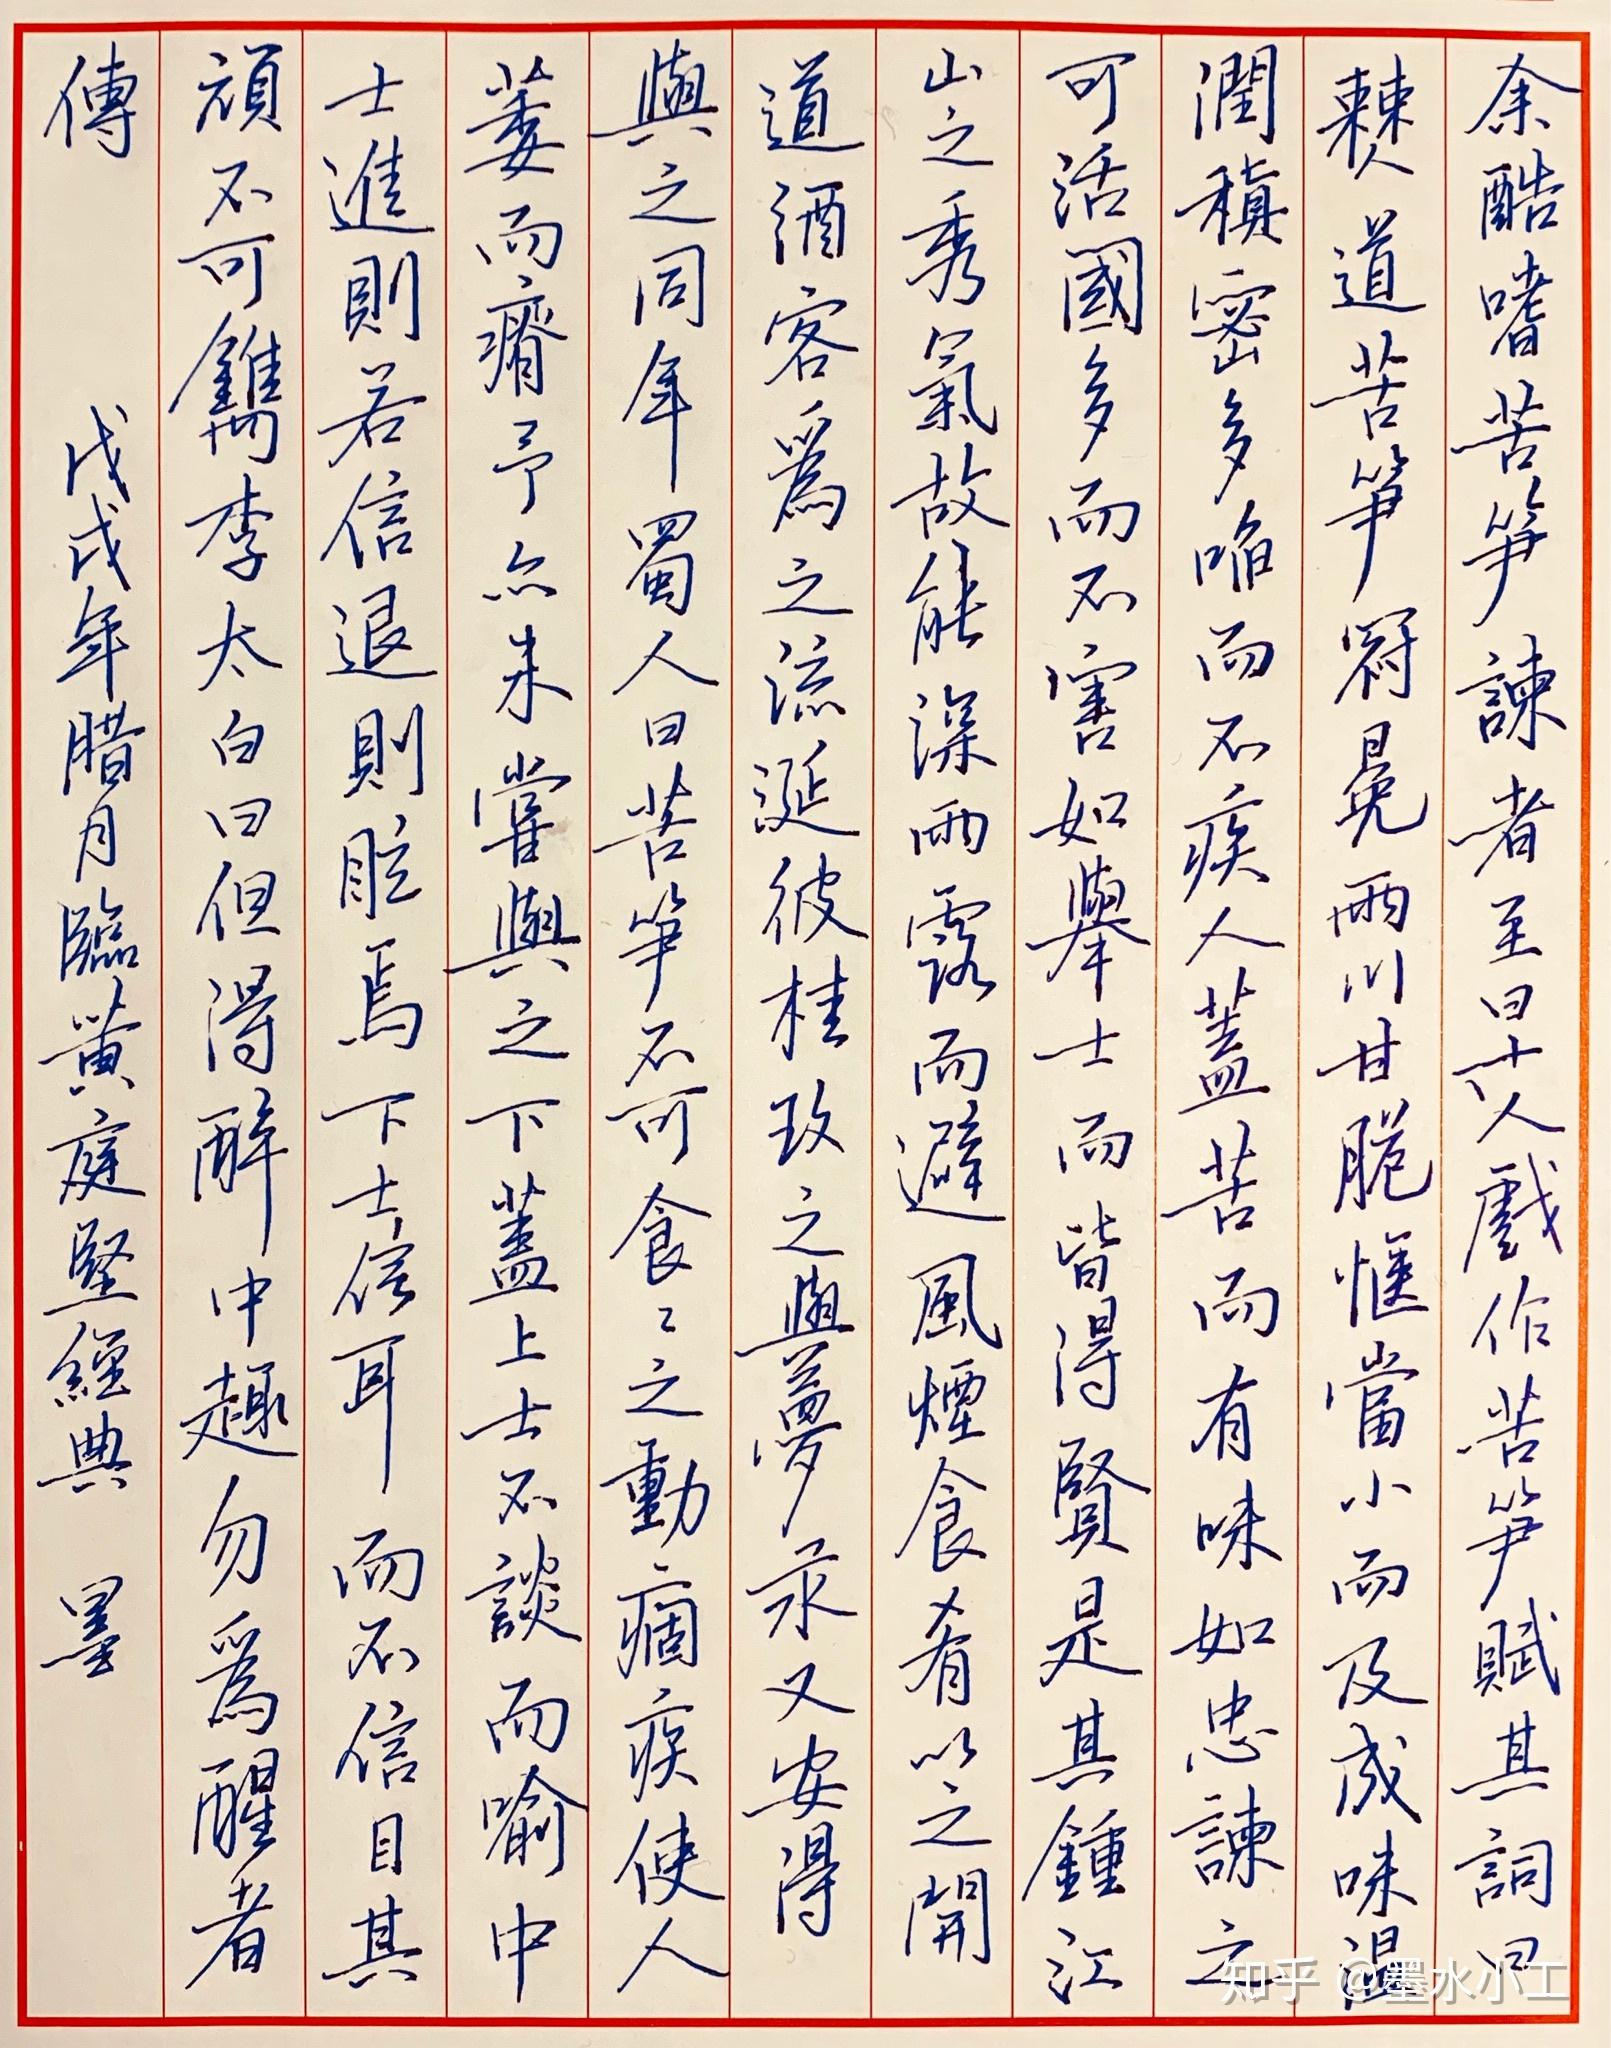 余酷嗜苦笋諫者至曰十人戲作苦笋賦其詞曰
僰道苦笋冠冕兩川甘脆惬當小而及成味溫
潤積密多啗而不疾人蓋苦而有味如忠諫之
可活國多而不害如舉士而皆得賢是其鍾江
山之秀氣故能深雨露而避風煙食肴以之開
道酒客爲之流涎彼桂玫之與夢永又安得
與之同年蜀人曰苦笋不可食〻之動痼疾使人
萎而瘠予亦未嘗與之下蓋上士不談而喻中
士進則若信退則眩焉下士信耳而不信目其
頑不可鐫李太白曰但得醉中趣勿爲醒者
傳 戊戌年腊月臨黃庭堅經典 墨
知乎 @墨水小工